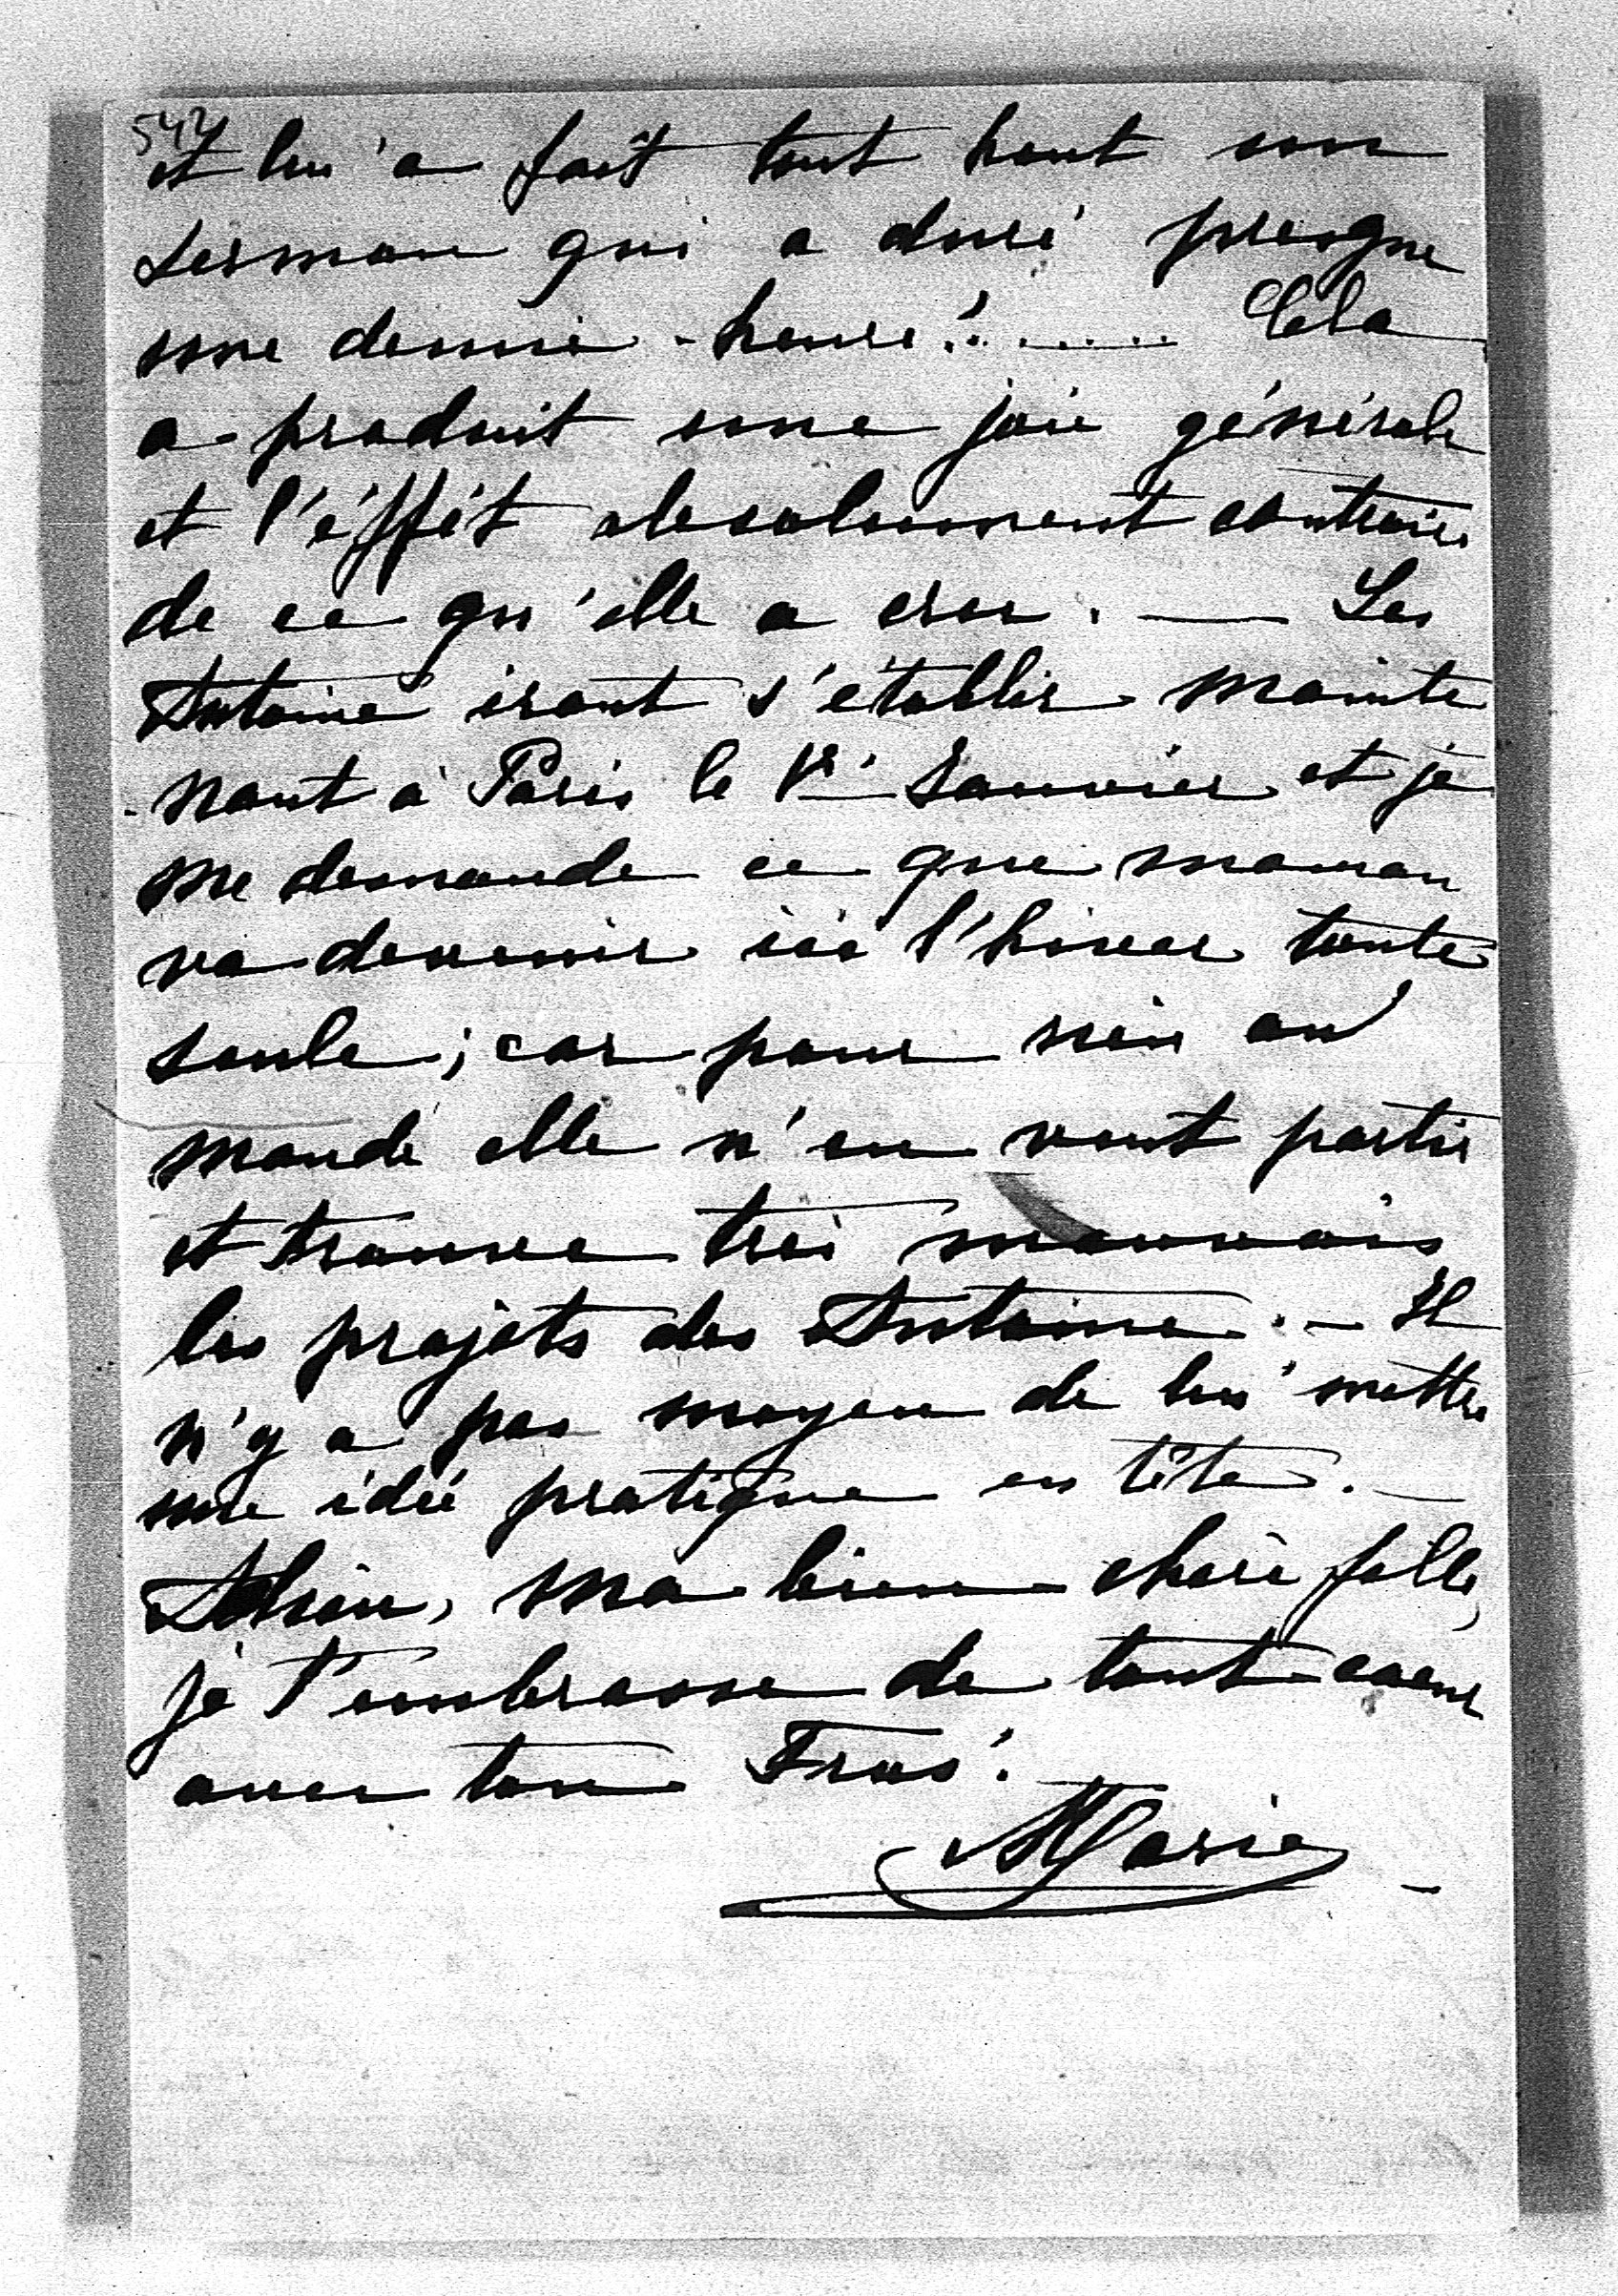 544
et lui a fait tout haut son
sermon qui a duré presque
une demie-heure!....... Cela
a produit une joie générale
et l'éffét absolument contraire
de ce qu'elle a cru. — Les
Antoine iront s'établir mainte
-nant à Paris le 1er Janvier et je
me demande ce que maman
va devenir ici l'hiver toute
seule; car pour rien au
monde elle n'en veut partir
et trouve très mauvais
les projets des Antoine. — Il
n'y a pas moyen de lui mettre
une idée pratique en tête. —
Adieu, ma bien chère fille,
je t'embrasse de tout coeur
avec ton
Marie —